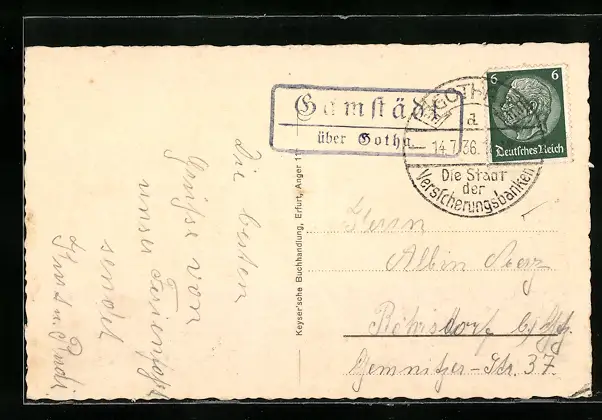 Die besten
Grüße von
unser Ferienfahrt
sendet
Keyser'sche Buchhandlung, Erfurt, Anger 11
Gamstädt
über Gotha
GOTHA
d
14.7.36.
Die Stadt
der
Versicherungsbanken
6 6
Deutsches Reich
Herrn
Albin
Chemnitzer-Str. 37